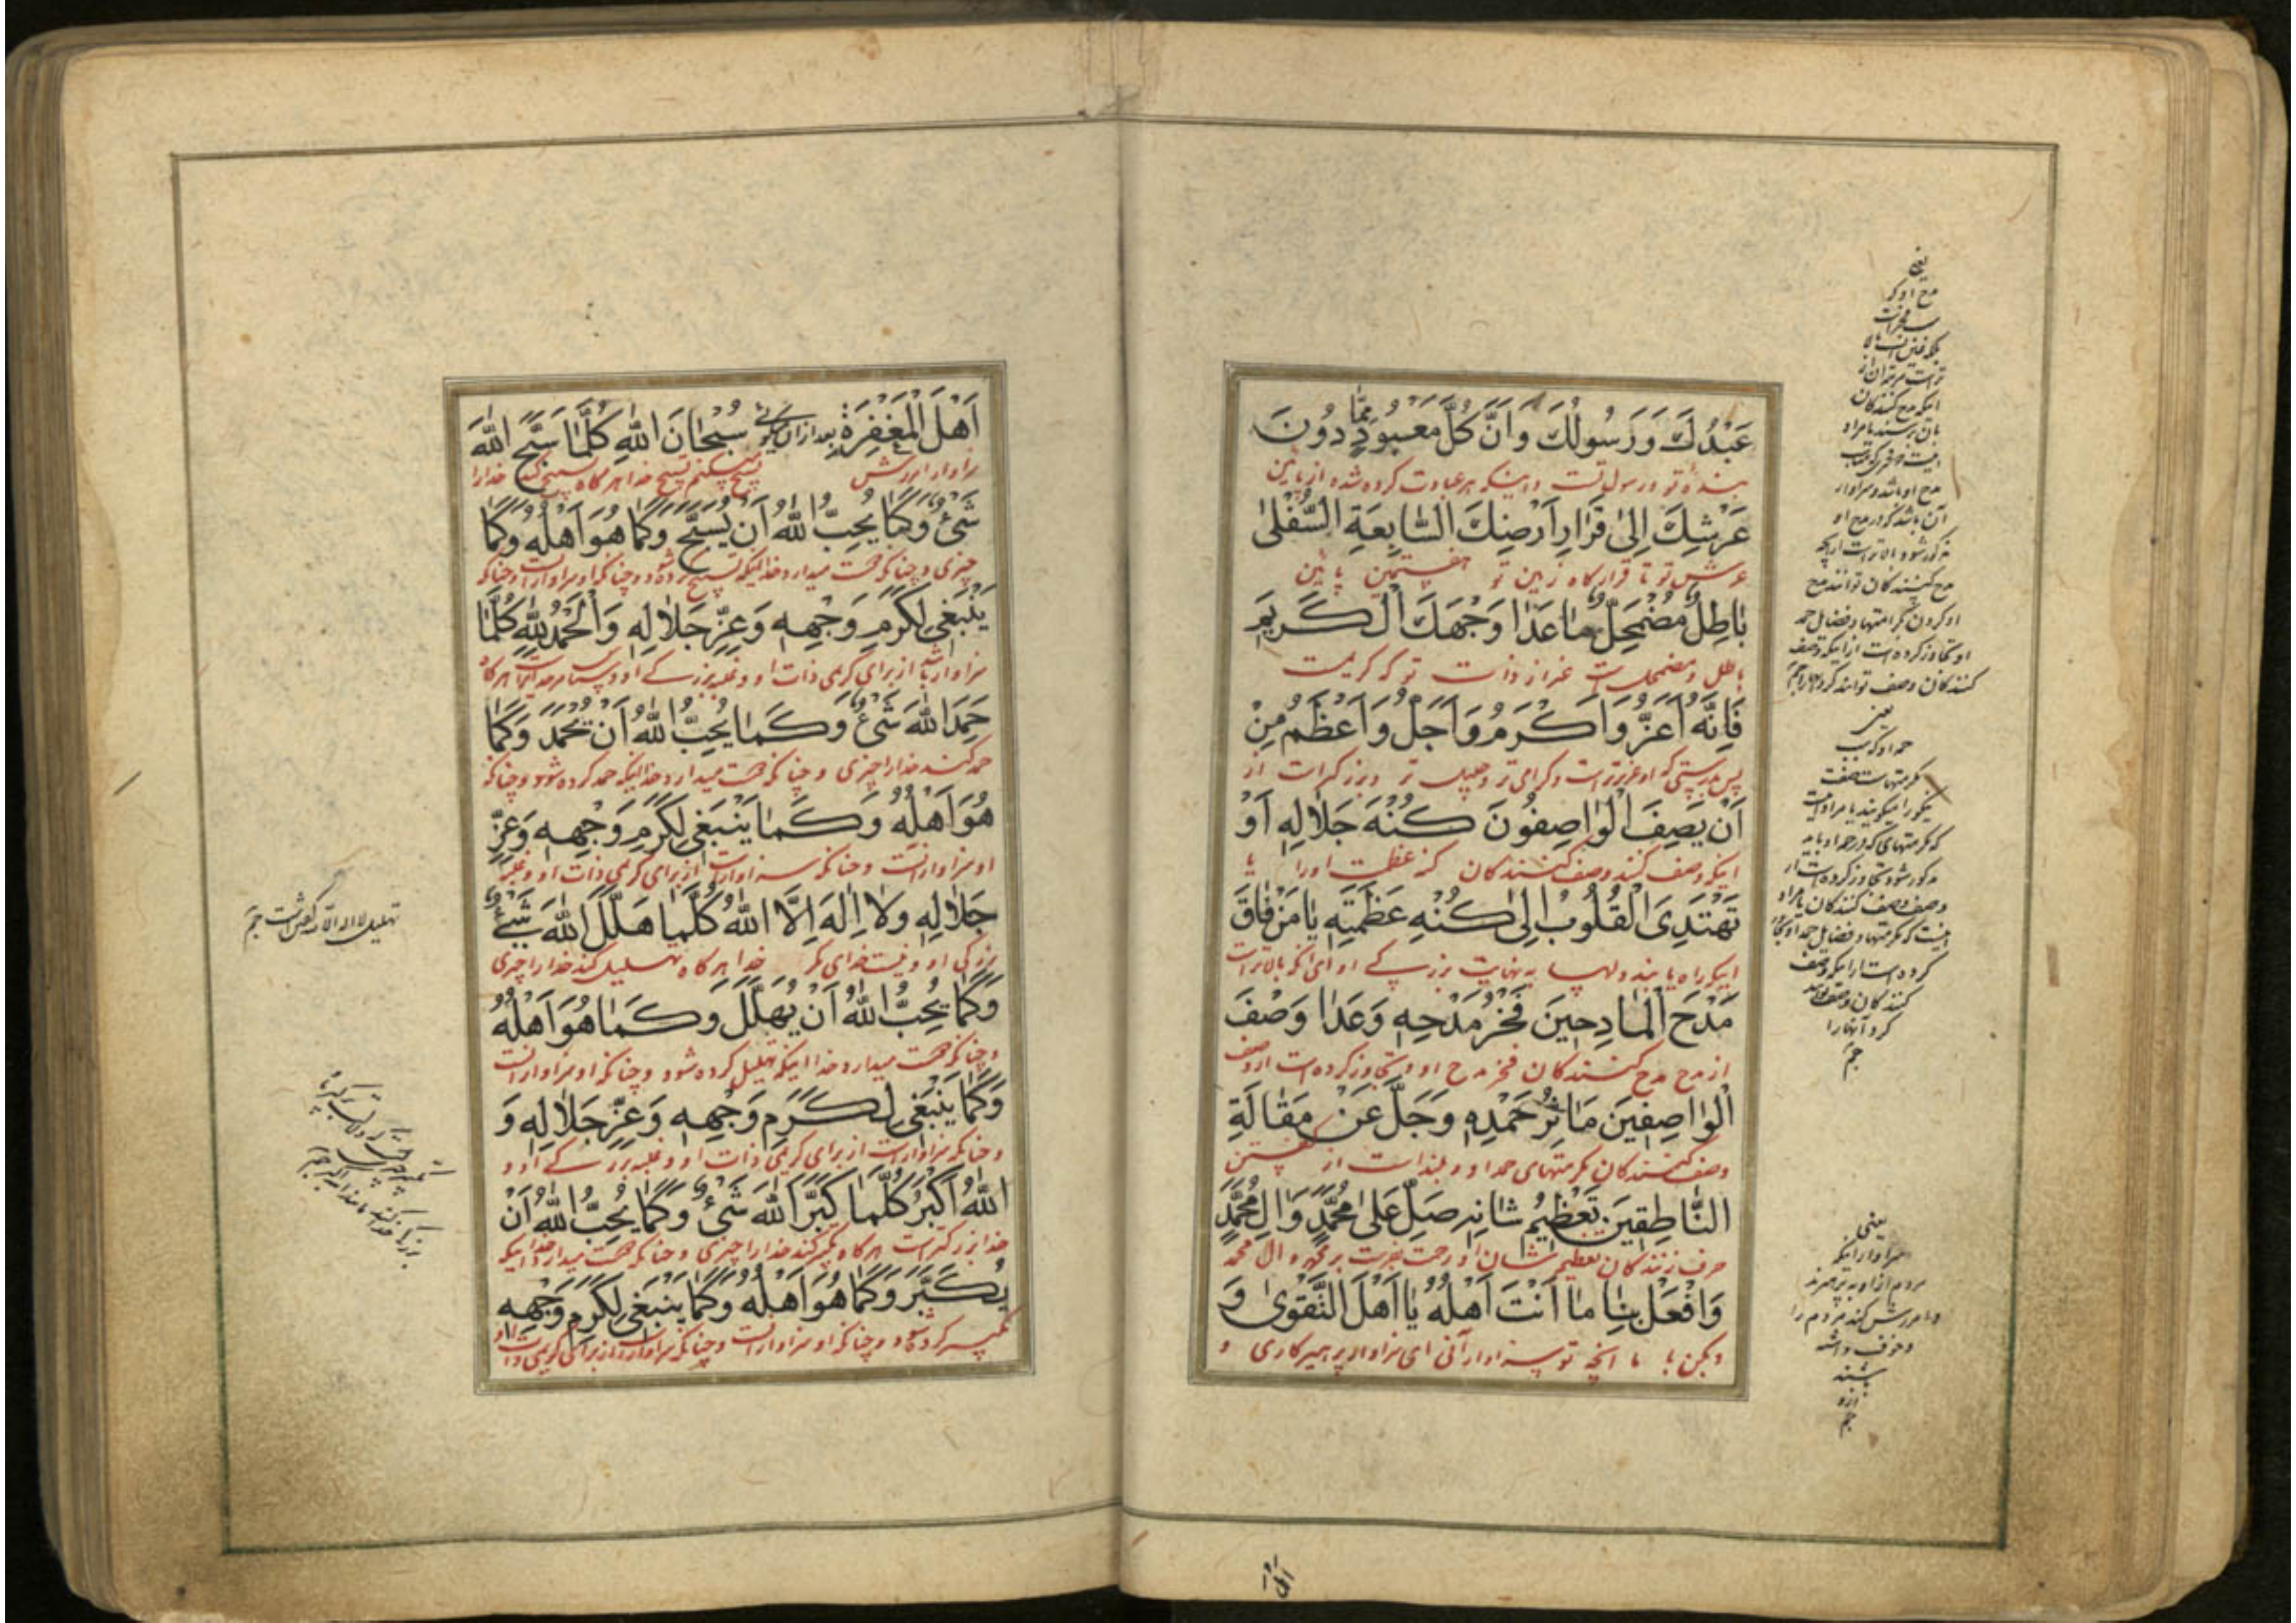 عَبْدُكَ وَرَسُولُكَ وَاَنَّ كُلَّ مَعْبُودٍ مِمَّا دُونَ
بنده تو و رسول تست و اینکه هر عبادت کرده شده از پائین
عَرْشِكَ اِلىٰ قَرَارِ اَرَضِكَ السَّابِعَةِ السُّفْلىٰ
عرش تو تا قرارگاه زمین تو هفتمین پائین
بٰاطِلٌ مُضْمَحِلٌّ مٰا عَدٰا وَجْهَكَ الْكَرِيمَ
باطل و مضمحلست غیر از ذات تو که کریمست
فَاِنَّهُ اَعَزُّ وَاَكْرَمُ وَاَجَلُّ وَاَعْظَمُ مِنْ
پس بدرستی که او عزیزتر است و گرامی تر و جلیل تر و بزرگتر است از
اَنْ يَصِفَ الْوٰاصِفُونَ كُنْهَ جَلاٰلِهِ اَوْ
اینکه وصف کنند وصف کنندگان کنه عظمت او را یا
تَهْتَدِىَ الْقُلُوبُ اِلىٰ كُنْهِ عَظَمَتِهِ يٰا مَنْ فٰاقَ
اینکه راه یابند دلها به نهایت بزرگی او ای آنکه بالاتر است
مَدْحَ الْمٰادِحِينَ فَخْرُ مَدْحِهِ وَعَدٰا وَصْفَ
از مدح مدح کنندگان فخر مدح او و تجاوز کرده است از وصف
الْوٰاصِفِينَ مَاٰثِرُ حَمْدِهِ وَجَلَّ عَنْ مَقٰالَةِ
وصف کنندگان مکرمتهای حمد او و بلند است از گفتن
النّٰاطِقِينَ تَعْظِيمُ شٰانِهِ صَلِّ عَلىٰ مُحَمَّدٍ وَاٰلِ مُحَمَّدٍ
حرف زنندگان تعظیم شان او رحمت بفرست بر محمد و آل محمد
وَافْعَلْ بِنٰا مٰا اَنْتَ اَهْلُهُ يٰا اَهْلَ التَّقْوىٰ وَ
و بکن با ما آنچه تو سزاوار آنی ای سزاوار پرهیزکاری و
یعنی
مدح او که
اینکه مدح کنندگان
مدح او باشد و سزاوار
آن باشد که در مدح او
مذکور شود بالاتر است از آنچه
مدح کنندگان توانند مدح
او کردن مکرمتها و فضایل حمد
او تجاوز کرده است از اینکه وصف
کنندگان وصف توانند کرد
یعنی
حمد او که
که مکرمتهای که در حمد او باید
مذکور شود تجاوز کرده است از
وصف وصف کنندگان
اینست که مکرمتها و فضایل حمد او
کرده است از اینکه وصف
کنندگان وصف توانند
کرد آنها را
یعنی
سزاوار اینکه
مردم از او به پرهیزند
و آمرزش کند مردم را
و خوف داشته
باشند
ازو
اَهْلَ الْمَغْفِرَةِ بعد از آن میگوئی سُبْحٰانَ اللهِ كُلَّمٰا سَبَّحَ اللهَ
سزاوار آمرزش تسبیح میکنم تسبیح خدا هرگاه تسبیح کند خدا را
شَىْءٌ وَكَمٰا يُحِبُّ اللهُ اَنْ يُسَبَّحَ وَكَمٰا هُوَ اَهْلُهُ وَكَمٰا
چیزی و چنانکه دوست میدارد خدا اینکه تسبیح کرده شود و چنانکه او سزاوار است و چنانکه
يَنْبَغِى لِكَرَمِ وَجْهِهِ وَعِزِّ جَلاٰلِهِ وَالْحَمْدُ لِلّٰهِ كُلَّمٰا
سزاوار است از برای کریمی ذات او و غلبه بزرگی او و سپاس مر خدا است هرگاه
حَمِدَ اللهَ شَىْءٌ وَكَمٰا يُحِبُّ اللهُ اَنْ يُحْمَدَ وَكَمٰا
حمد کند خدا را چیزی و چنانکه دوست میدارد خدا اینکه حمد کرده شود و چنانکه
هُوَ اَهْلُهُ وَكَمٰا يَنْبَغِى لِكَرَمِ وَجْهِهِ وَعِزِّ
او سزاوار است و چنانکه سزاوار است از برای کریمی ذات او و غلبه
جَلاٰلِهِ وَلاٰ اِلٰهَ اِلَّا اللهُ كُلَّمٰا هَلَّلَ اللهَ شَىْءٌ
بزرگی او و نیست خدای مگر خدا هرگاه تهلیل کند خدا را چیزی
وَكَمٰا يُحِبُّ اللهُ اَنْ يُهَلَّلَ وَكَمٰا هُوَ اَهْلُهُ
و چنانکه دوست میدارد خدا اینکه تهلیل کرده شود و چنانکه او سزاوار است
وَكَمٰا يَنْبَغِى لِكَرَمِ وَجْهِهِ وَعِزِّ جَلاٰلِهِ وَ
و چنانکه سزاوار است از برای کریمی ذات او و غلبه بزرگی او و
اللهُ اَكْبَرُ كُلَّمٰا كَبَّرَ اللهَ شَىْءٌ وَكَمٰا يُحِبُّ اللهُ اَنْ
خدا بزرگتر است هرگاه تکبیر کند خدا را چیزی و چنانکه دوست میدارد خدا اینکه
يُكَبَّرَ وَكَمٰا هُوَ اَهْلُهُ وَكَمٰا يَنْبَغِى لِكَرَمِ وَجْهِهِ
تکبیر کرده شود و چنانکه او سزاوار است و چنانکه سزاوار است از برای کریمی ذات او
تهلیل لا اله الا الله گفتن است